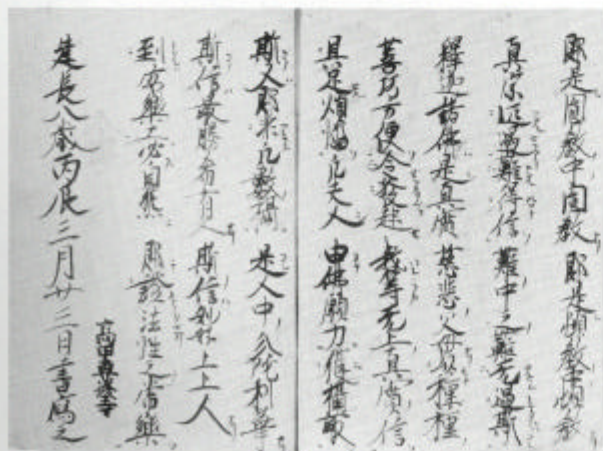 即是圓教中圓教 即是頓教中頓教
真宗叵遇難得信 難中之難无過斯
釋迦諸佛是真實 慈悲父母以種種
善巧方便令發起 我等无上真實信
具足煩惱凡夫人 由佛願力獲攝取
斯人即非凡數攝 是人中分陀利華
斯信最勝希有人 斯信妙好上上人
到安樂土必自然 即證法性之常樂
高田專修寺
建長八歲丙辰三月廿三日書寫之